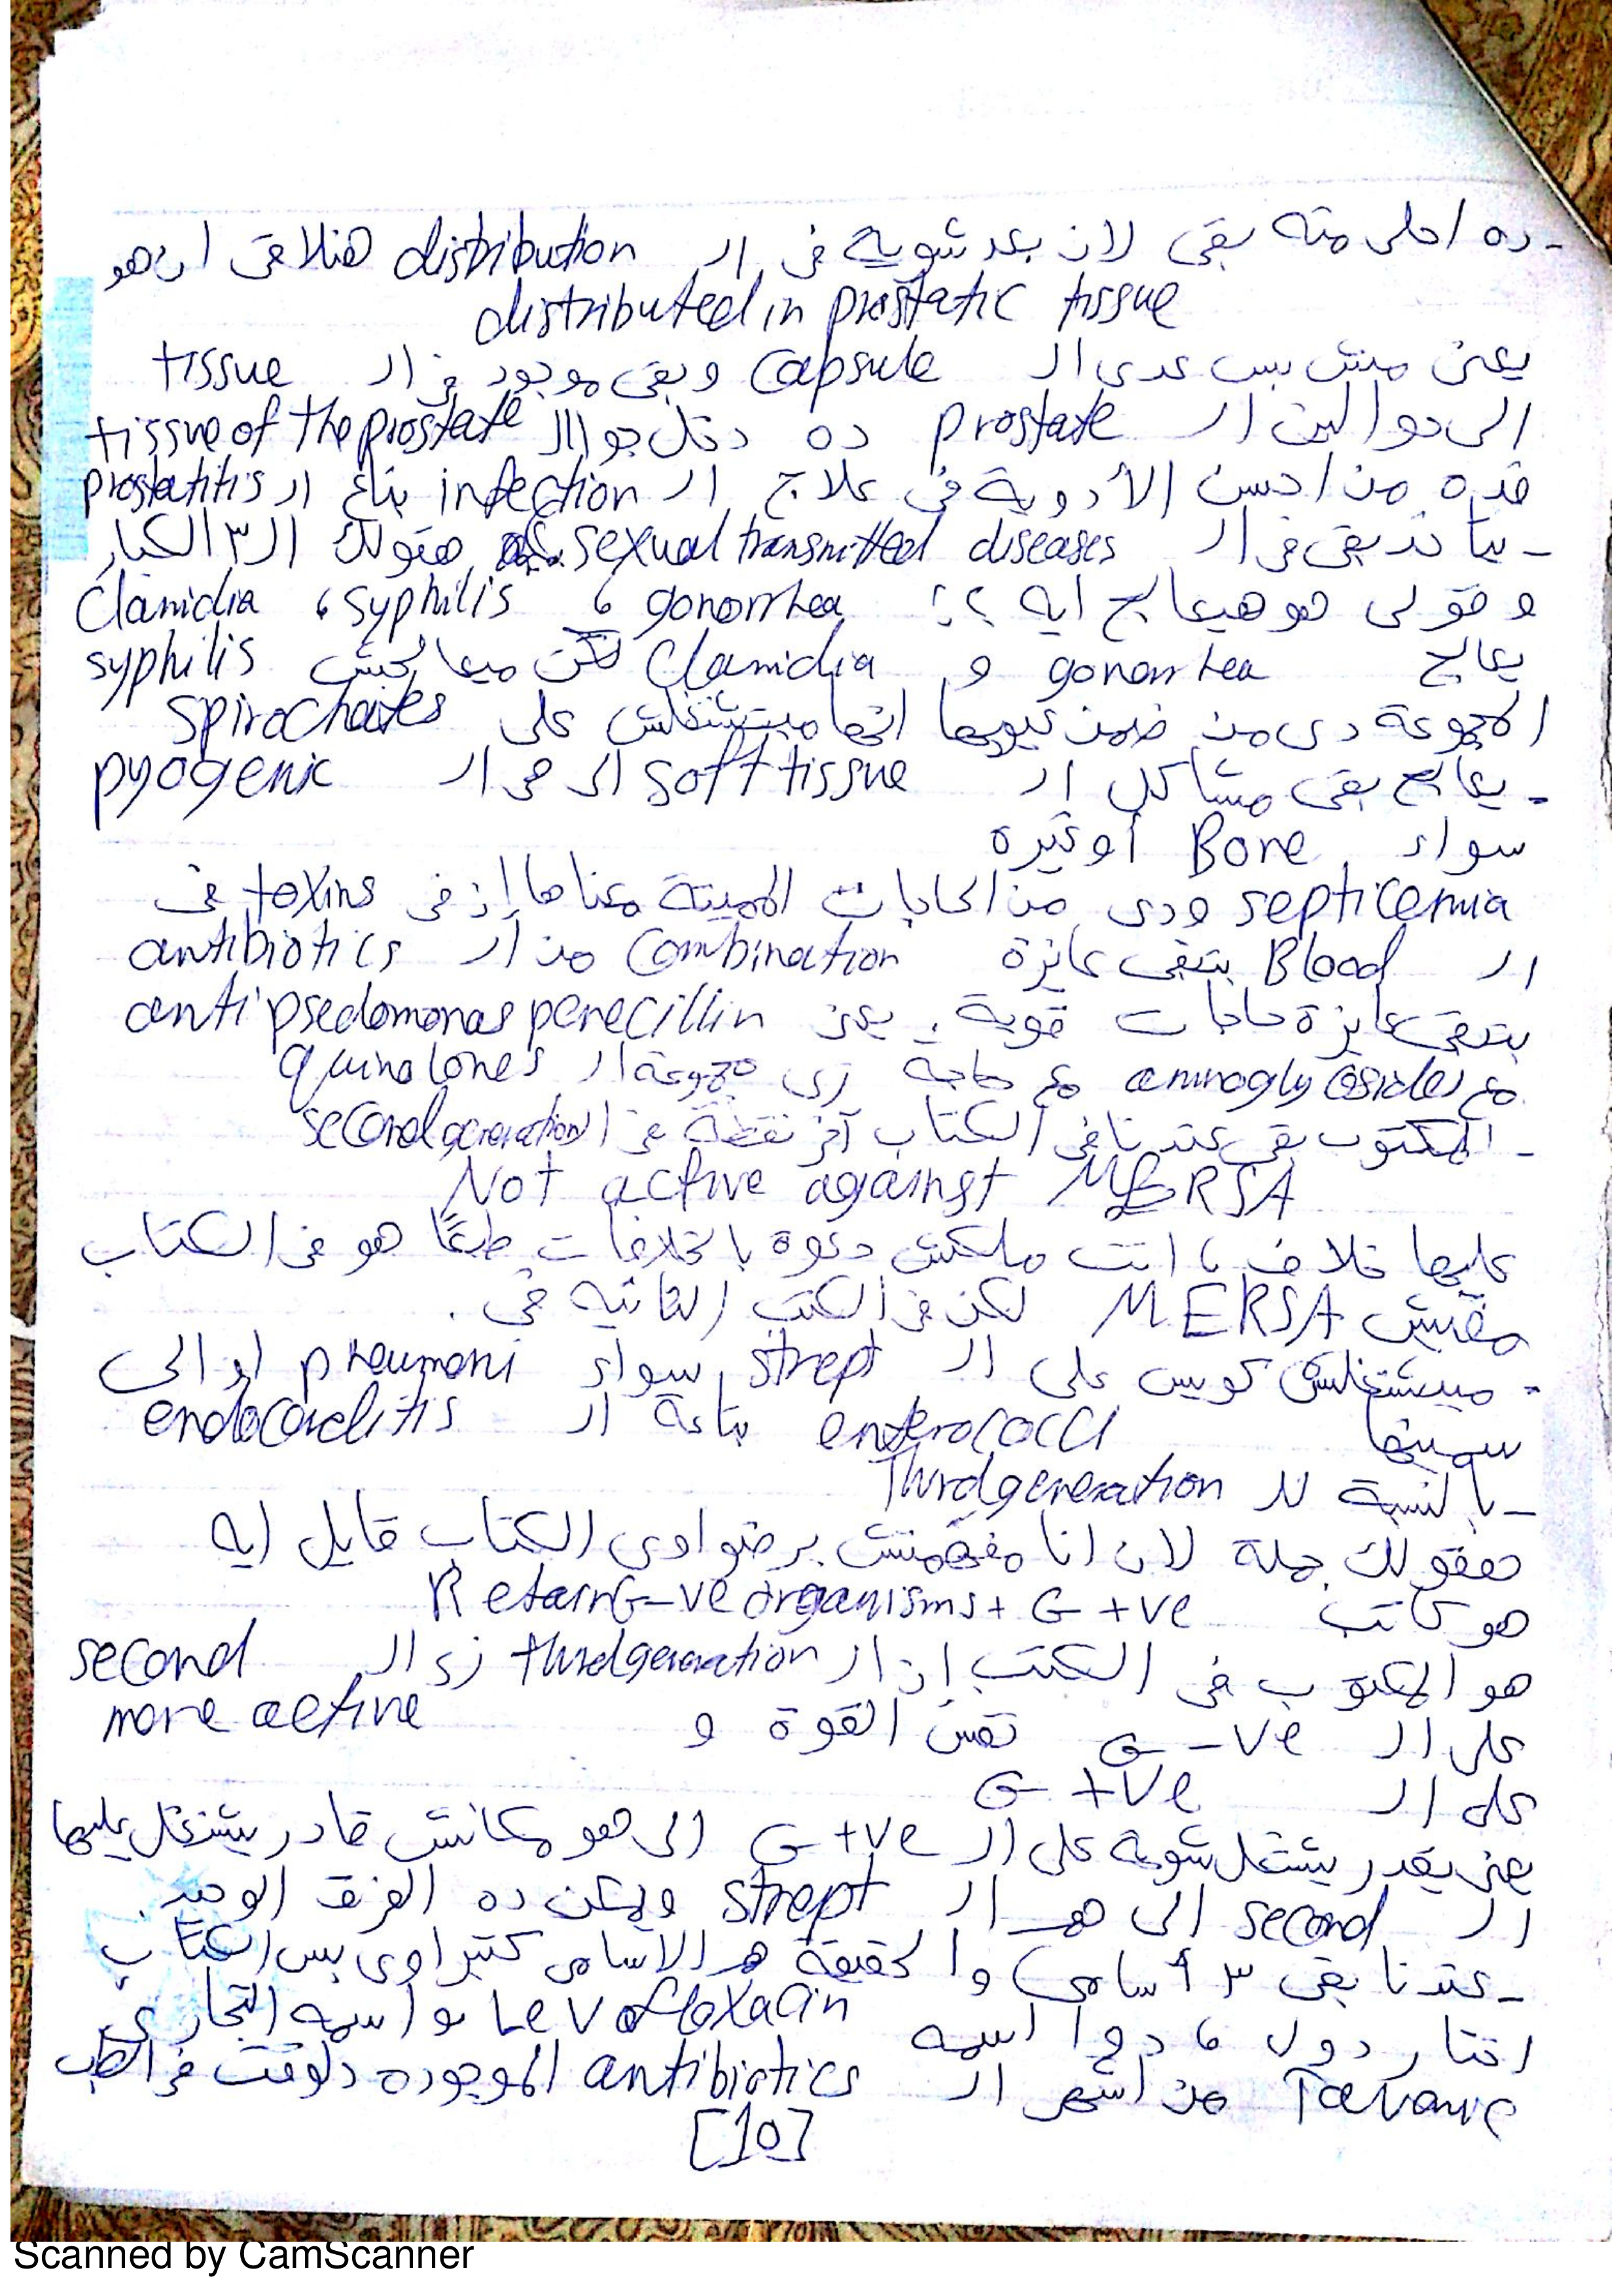 - ده احلى منه بقى لان بعد شوية فى ال distribution هنلاقى ان هو
distributed in prostatic tissue
يعنى مش بس عدى ال capsule وبقى موجود فى ال tissue
الى حوالين ال prostate ده دخل جوا ال tissue of the prostate
فده من احسن الأدوية فى علاج ال infection بتاع ال prostatitis
- بيتاخد بقى فى ال sexual transmitted diseases هقولك ال ٣ الكبار
وقولى هو هيعالج ايه ؟؟ gonorrhea ، syphilis ، Clamidia
يعالج gonorrhea و Clamidia لكن ميعالجش syphilis
المجموعة دى من ضمن عيوبها انها مبتشتغلش على spirochaites
- يعالج بقى مشاكل ال soft tissue الى هى ال pyogenic
سواء Bone أو غيره
septicemia ودى من الحاجات المميتة معناها إن فى toxins فى
ال Blood بتبقى عايزة combination من ال antibiotics
بتبقى عايزة حاجات قوية، يعنى anti psedomonas penecillin
مع aminoglycosides مع حاجة زى مجموعة ال quinolones
- المكتوب بقى عندنا فى الكتاب آخر نقطة فى ال second generation
Not active against MERSA
عليها خلاف ، انت ملكش دعوة بالخلافات طبعًا هو فى الكتاب
مفيش MERSA لكن فى الكتب التانيه فى .
- مبيشتغلش كويس على ال strept سواء pneumoni او الى
سميتها enterococci بتاعة ال endocarditis
- بالنسبة لل Third generation
هقولك جملة لان انا مفهمتش برضو اوى الكتاب قايل ايه
هو كاتب Retain G-ve organisms + G +ve
هو المكتوب فى الكتب إن ال third generation زى ال second
على ال G -ve نفس القوة و more active
على ال G +ve
يعنى يقدر يشتغل شوية على ال G +ve الى هو مكانش قادر يشتغل عليها
ال second الى هى ال strept ويمكن ده الفرق الوحيد.
- عندنا بقى ٣ أسامى والحقيقة هى الاسامى كتير اوى بس الكتاب
اختار دول ، دوا اسمه Levofloxacin واسمه التجارى
Tavanic من أشهر ال antibiotics الموجوده دلوقت فى الطب
[10]
Scanned by CamScanner